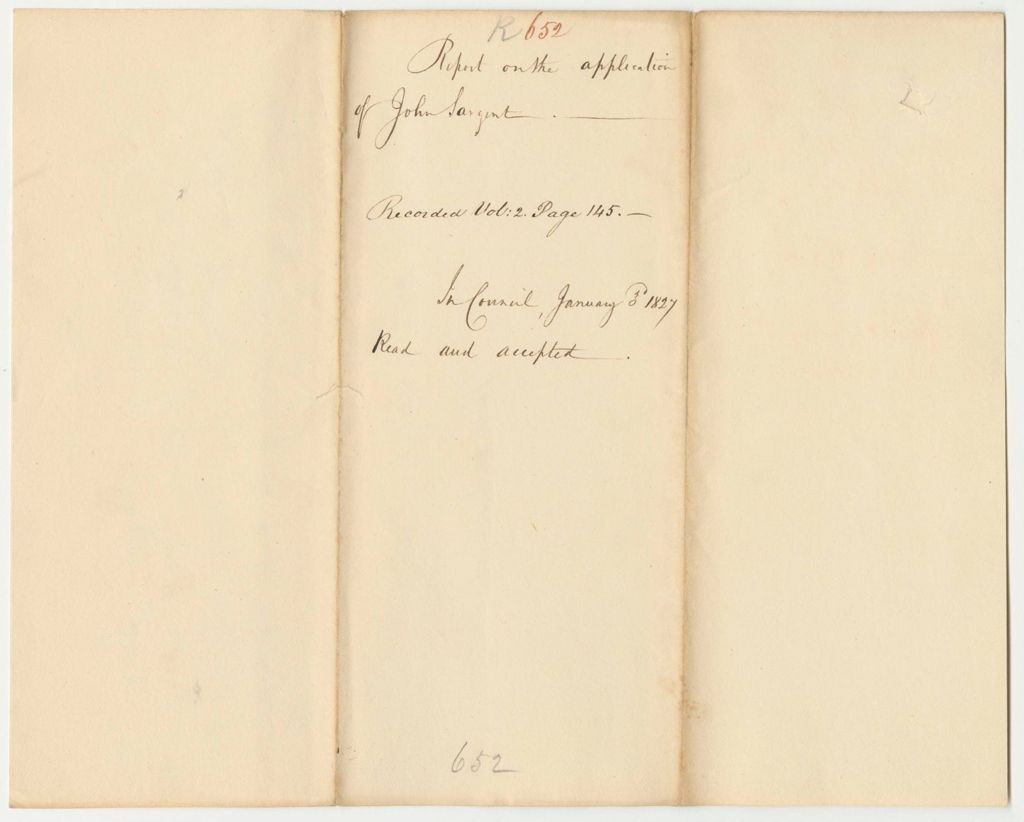 R 652
Report on the application
of John Sargent . ——
Recorded Vol: 2. Page 145. —
In Council, January 3d 1827
Read and accepted .
652